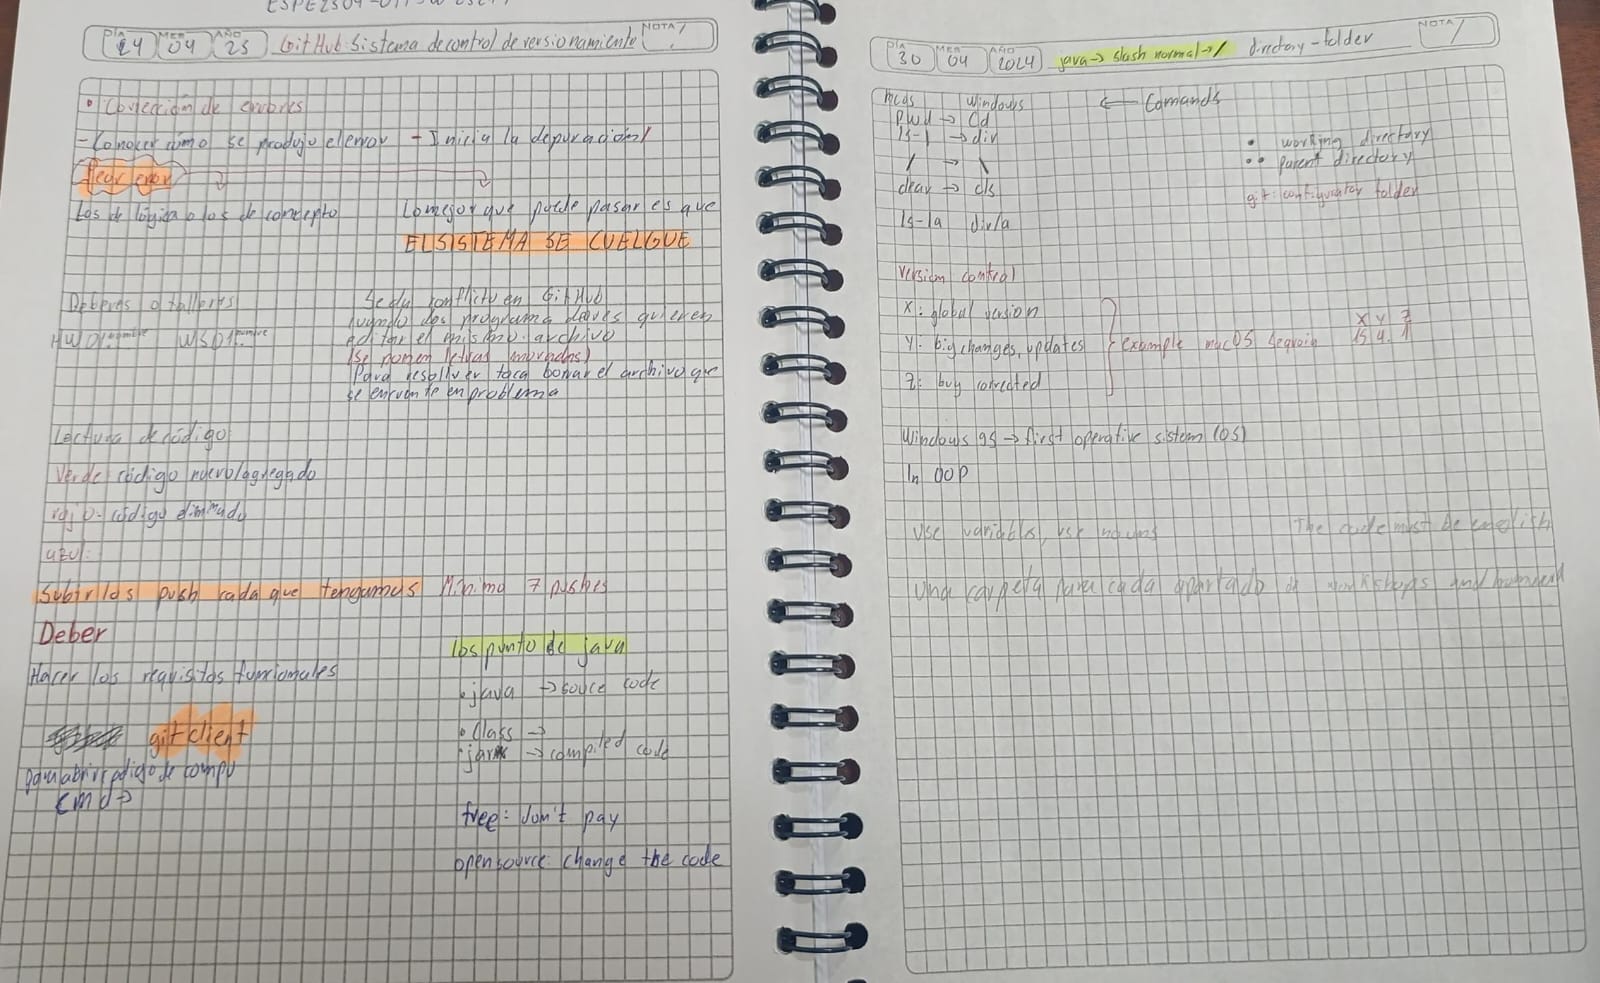 24 04 25 GitHub: Sistema de control de versionamiento NOTA
• Corrección de errores
- Conocer cómo se produjo el error - Inicia la depuración
Peor error
Los de lógica o los de concepto Lo mejor que puede pasar es que
EL SISTEMA SE CUELGUE
Deberes o talleres
HW01nombre WS01nombre
Se da conflicto en GitHub
cuando dos programadores quieren
editar el mismo archivo
(se ponen letras moradas)
Para resolver toca borrar el archivo que
se encuentre en problema
Lectura de código
Verde: código nuevo/agregado
rojo- código eliminado
azul:
Subir los push cada que tengamos Mínimo 7 pushes
Deber
Hacer los requisitos funcionales
git client
para abrir código de compu
cmd→
los punto de java
.java → souce code
• Class →
.jar → compiled code
free: don't pay
open source: change the code
DÍA MES AÑO NOTA
30 04 2024 java→ slash normal→/ directory-folder
Windows ← Comands
pwd → Cd
ls-l → dir
/ → \
clear → cls
ls-la dir/a
• working directory
•• parent directory
git: configurator folder
Version control
X: global version
Y: big changes, updates
Z: bug corrected
example macOS Sequoia
X Y Z
15.4.1
Windows 95 → first operative sistem (OS)
In OOP
Use variables, use nouns The code must be english
Una carpeta para cada apartado workshops and